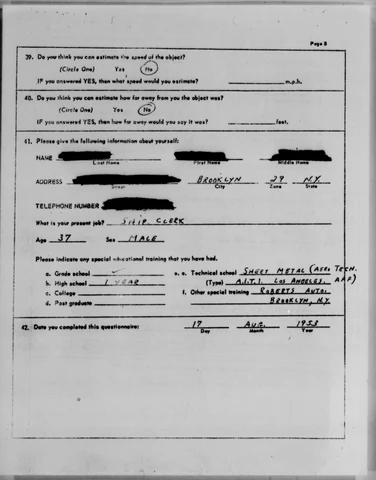 Page 8
39. Do you think you can estimate the speed of the object?
(Circle One) Yes No
IF you answered YES, then what speed would you estimate? m.p.h.
40. Do you think you can estimate how far away from you the object was?
(Circle One) Yes No
IF you answered YES, then how far away would you say it was? feet.
41. Please give the following information about yourself:
NAME
Last Name First Name Middle Name
ADDRESS BROOKLYN 29 N.Y.
Street City Zone State
TELEPHONE NUMBER
What is your present job? SHIP. CLERK
Age 37 Sex MALE
Please indicate any special educational training that you have had.
a. Grade school ✓ e. Technical school SHEET METAL (AERO TECH.
b. High school 1 YEAR (Type) A.I.T.I. LOS ANGELES.
c. College f. Other special training ROBERTS AUTO.
d. Post graduate BROOKLYN, N.Y.
42. Date you completed this questionnaire: 17 AUG. 1953
Day Month Year